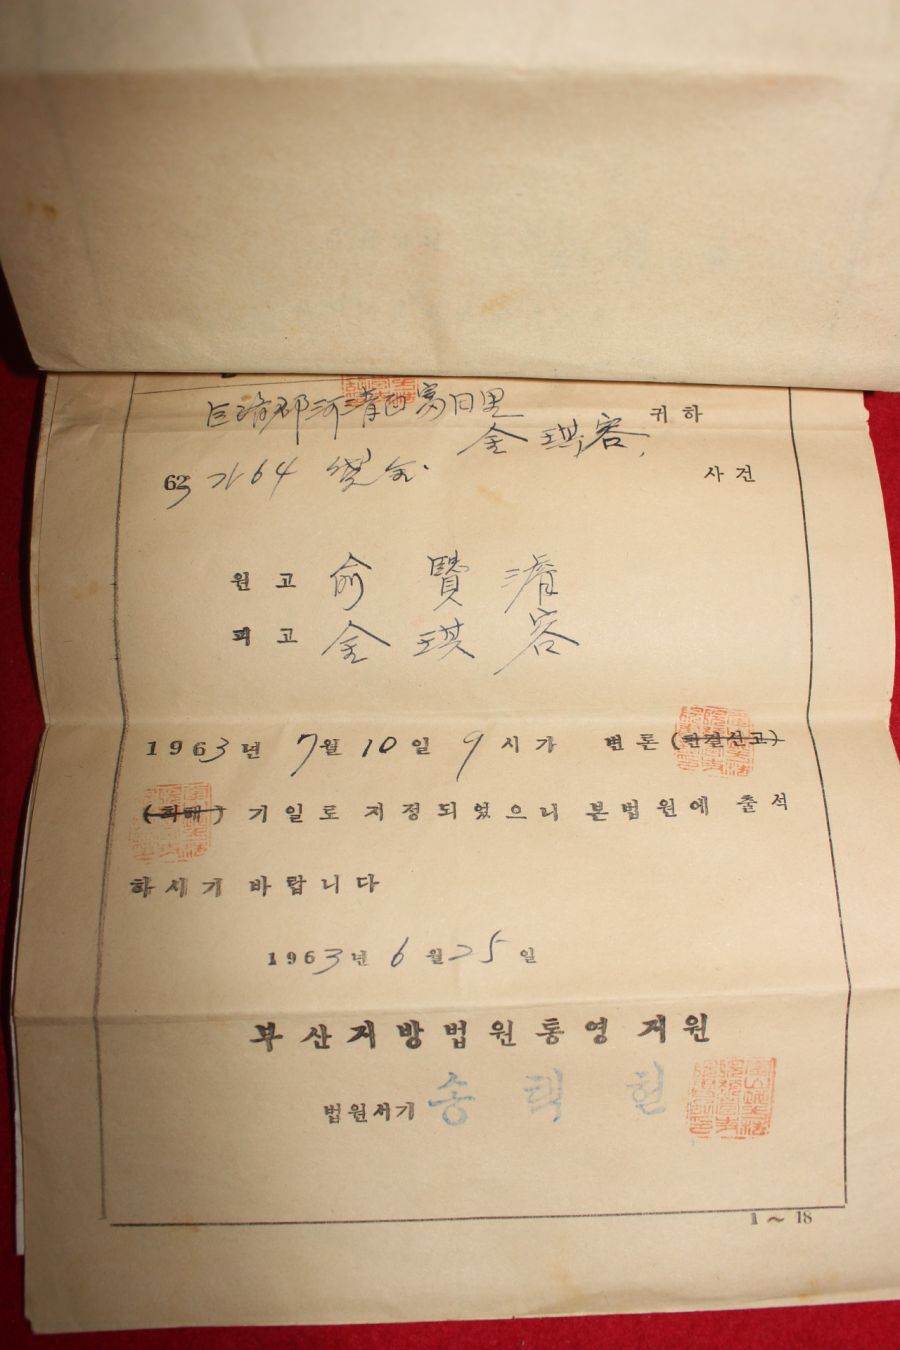 巨濟郡河淸面 귀하
金琪容
63 가64 사건
원고 兪賢濬
피고 金琪容
1963년 7월 10일 9시가 변론 (판결선고)
(화해) 기일로 지정되었으니 본법원에 출석
하시기 바랍니다
1963년 6월 25일
부산지방법원통영지원
법원서기 송택헌
1~18